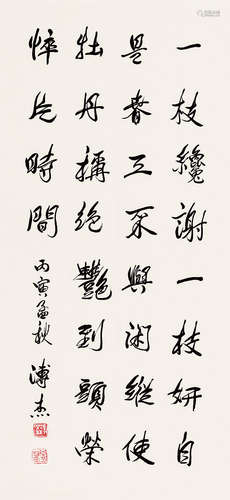 一枝纔謝一枝妍自
是春工不與閑縱使
牡丹稱絕艷到頭榮
悴片時間
丙寅孟秋 溥杰